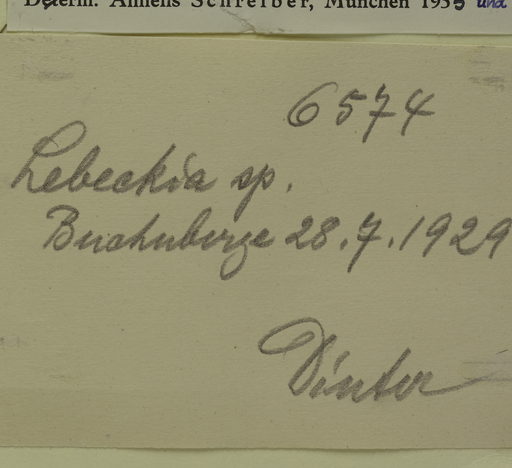 Determ. Annelis Schreiber, München 1955 und
6574
Lebeckia sp.
Buchuberge 28.7.1929
Dinter